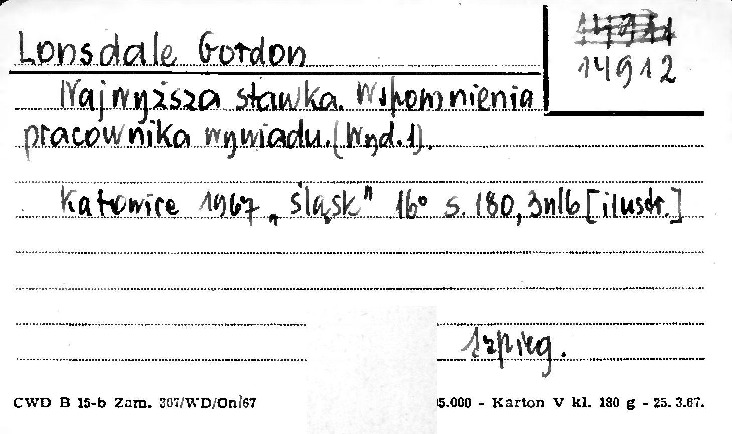 Lonsdale Gordon
14912
Najwyższa stawka. Wspomnienia
pracownika wywiadu. (Wyd. 1).
Katowice 1967 „Śląsk" 16° s. 180, 3nlb [ilustr.]
szpieg.
CWD B 15-b Zam. 307/WD/On/67 5.000 - Karton V kl. 180 g - 25. 3.67.